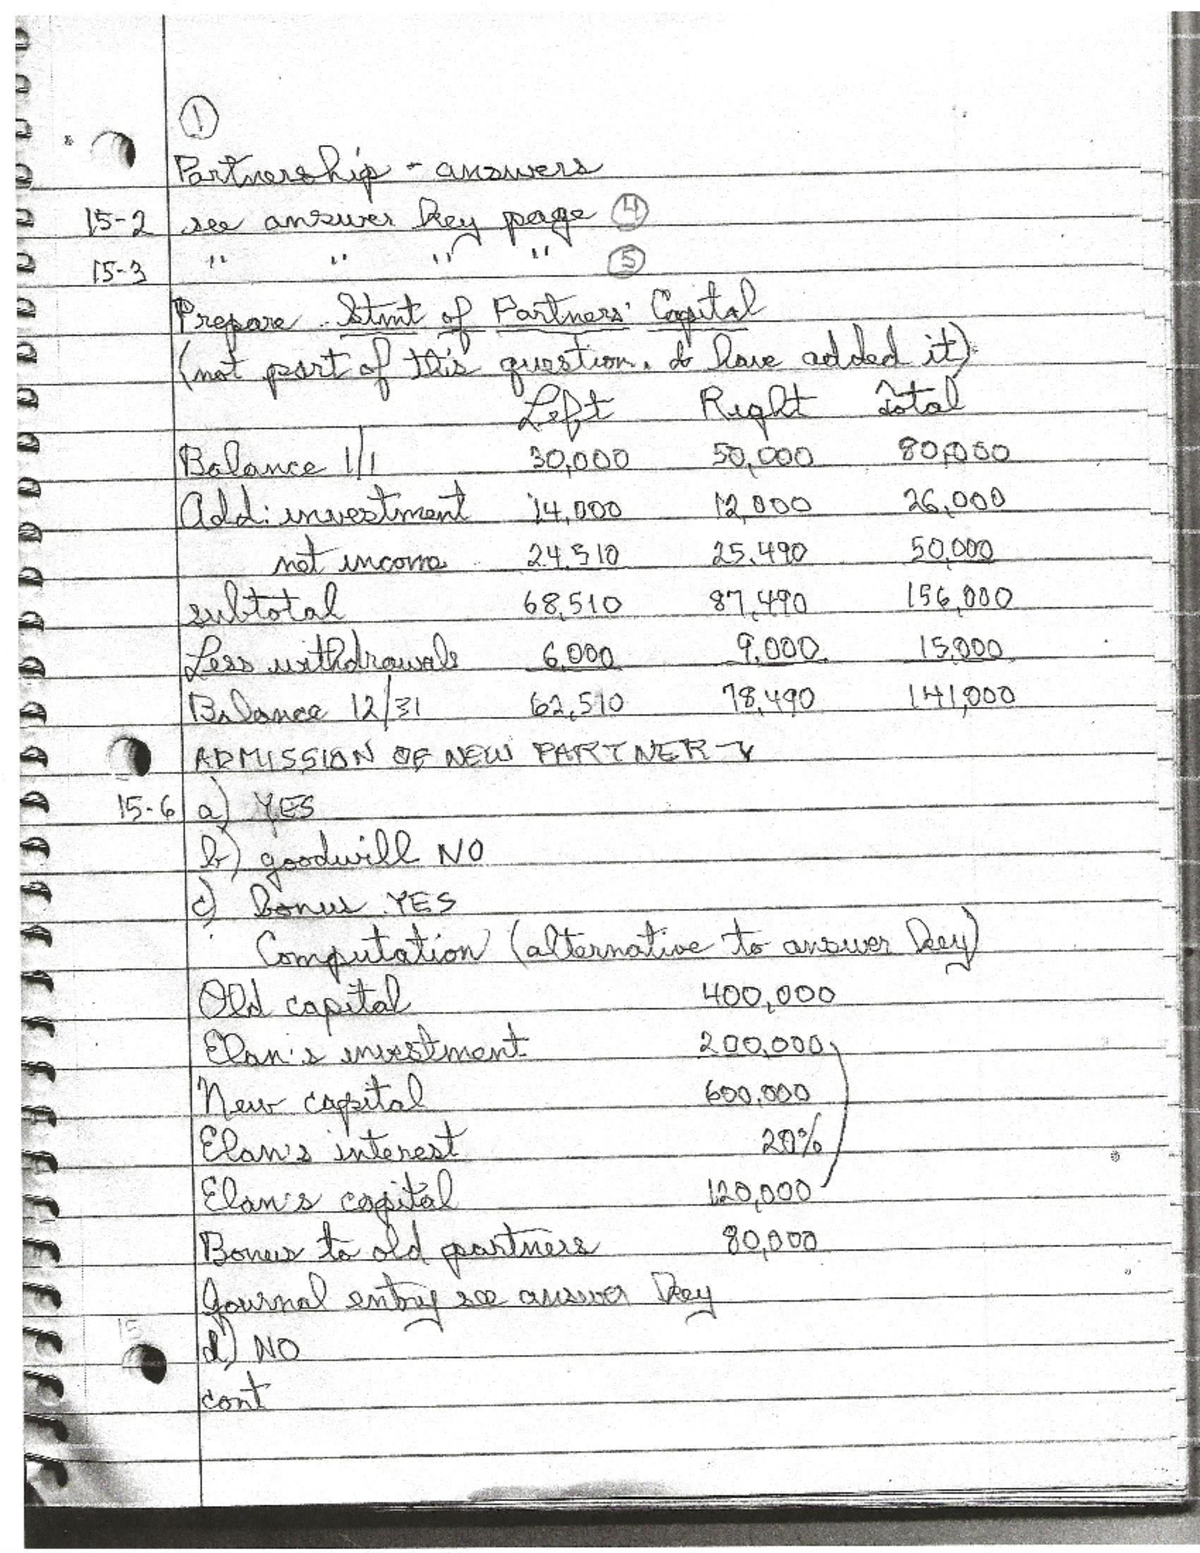 1
Partnership - answers
15-2 see answer key page 4
15-3 " " " " 5
Prepare Stmt of Partners' Capital
(not part of this question. I have added it)
Left Right Total
Balance 1/1 30,000 50,000 80,000
Add: investment 14,000 12,000 26,000
net income 24,510 25,490 50,000
subtotal 68,510 87,490 156,000
Less withdrawals 6,000 9,000 15,000
Balance 12/31 62,510 78,490 141,000
ADMISSION OF NEW PARTNER
15-6 a) YES
b) goodwill NO
c) bonus YES
Computation (alternative to answer key)
Old capital 400,000
Elan's investment 200,000
New capital 600,000
Elan's interest 20%
Elan's capital 120,000
Bonus to old partners 80,000
Journal entry see answer key
d) NO
cont